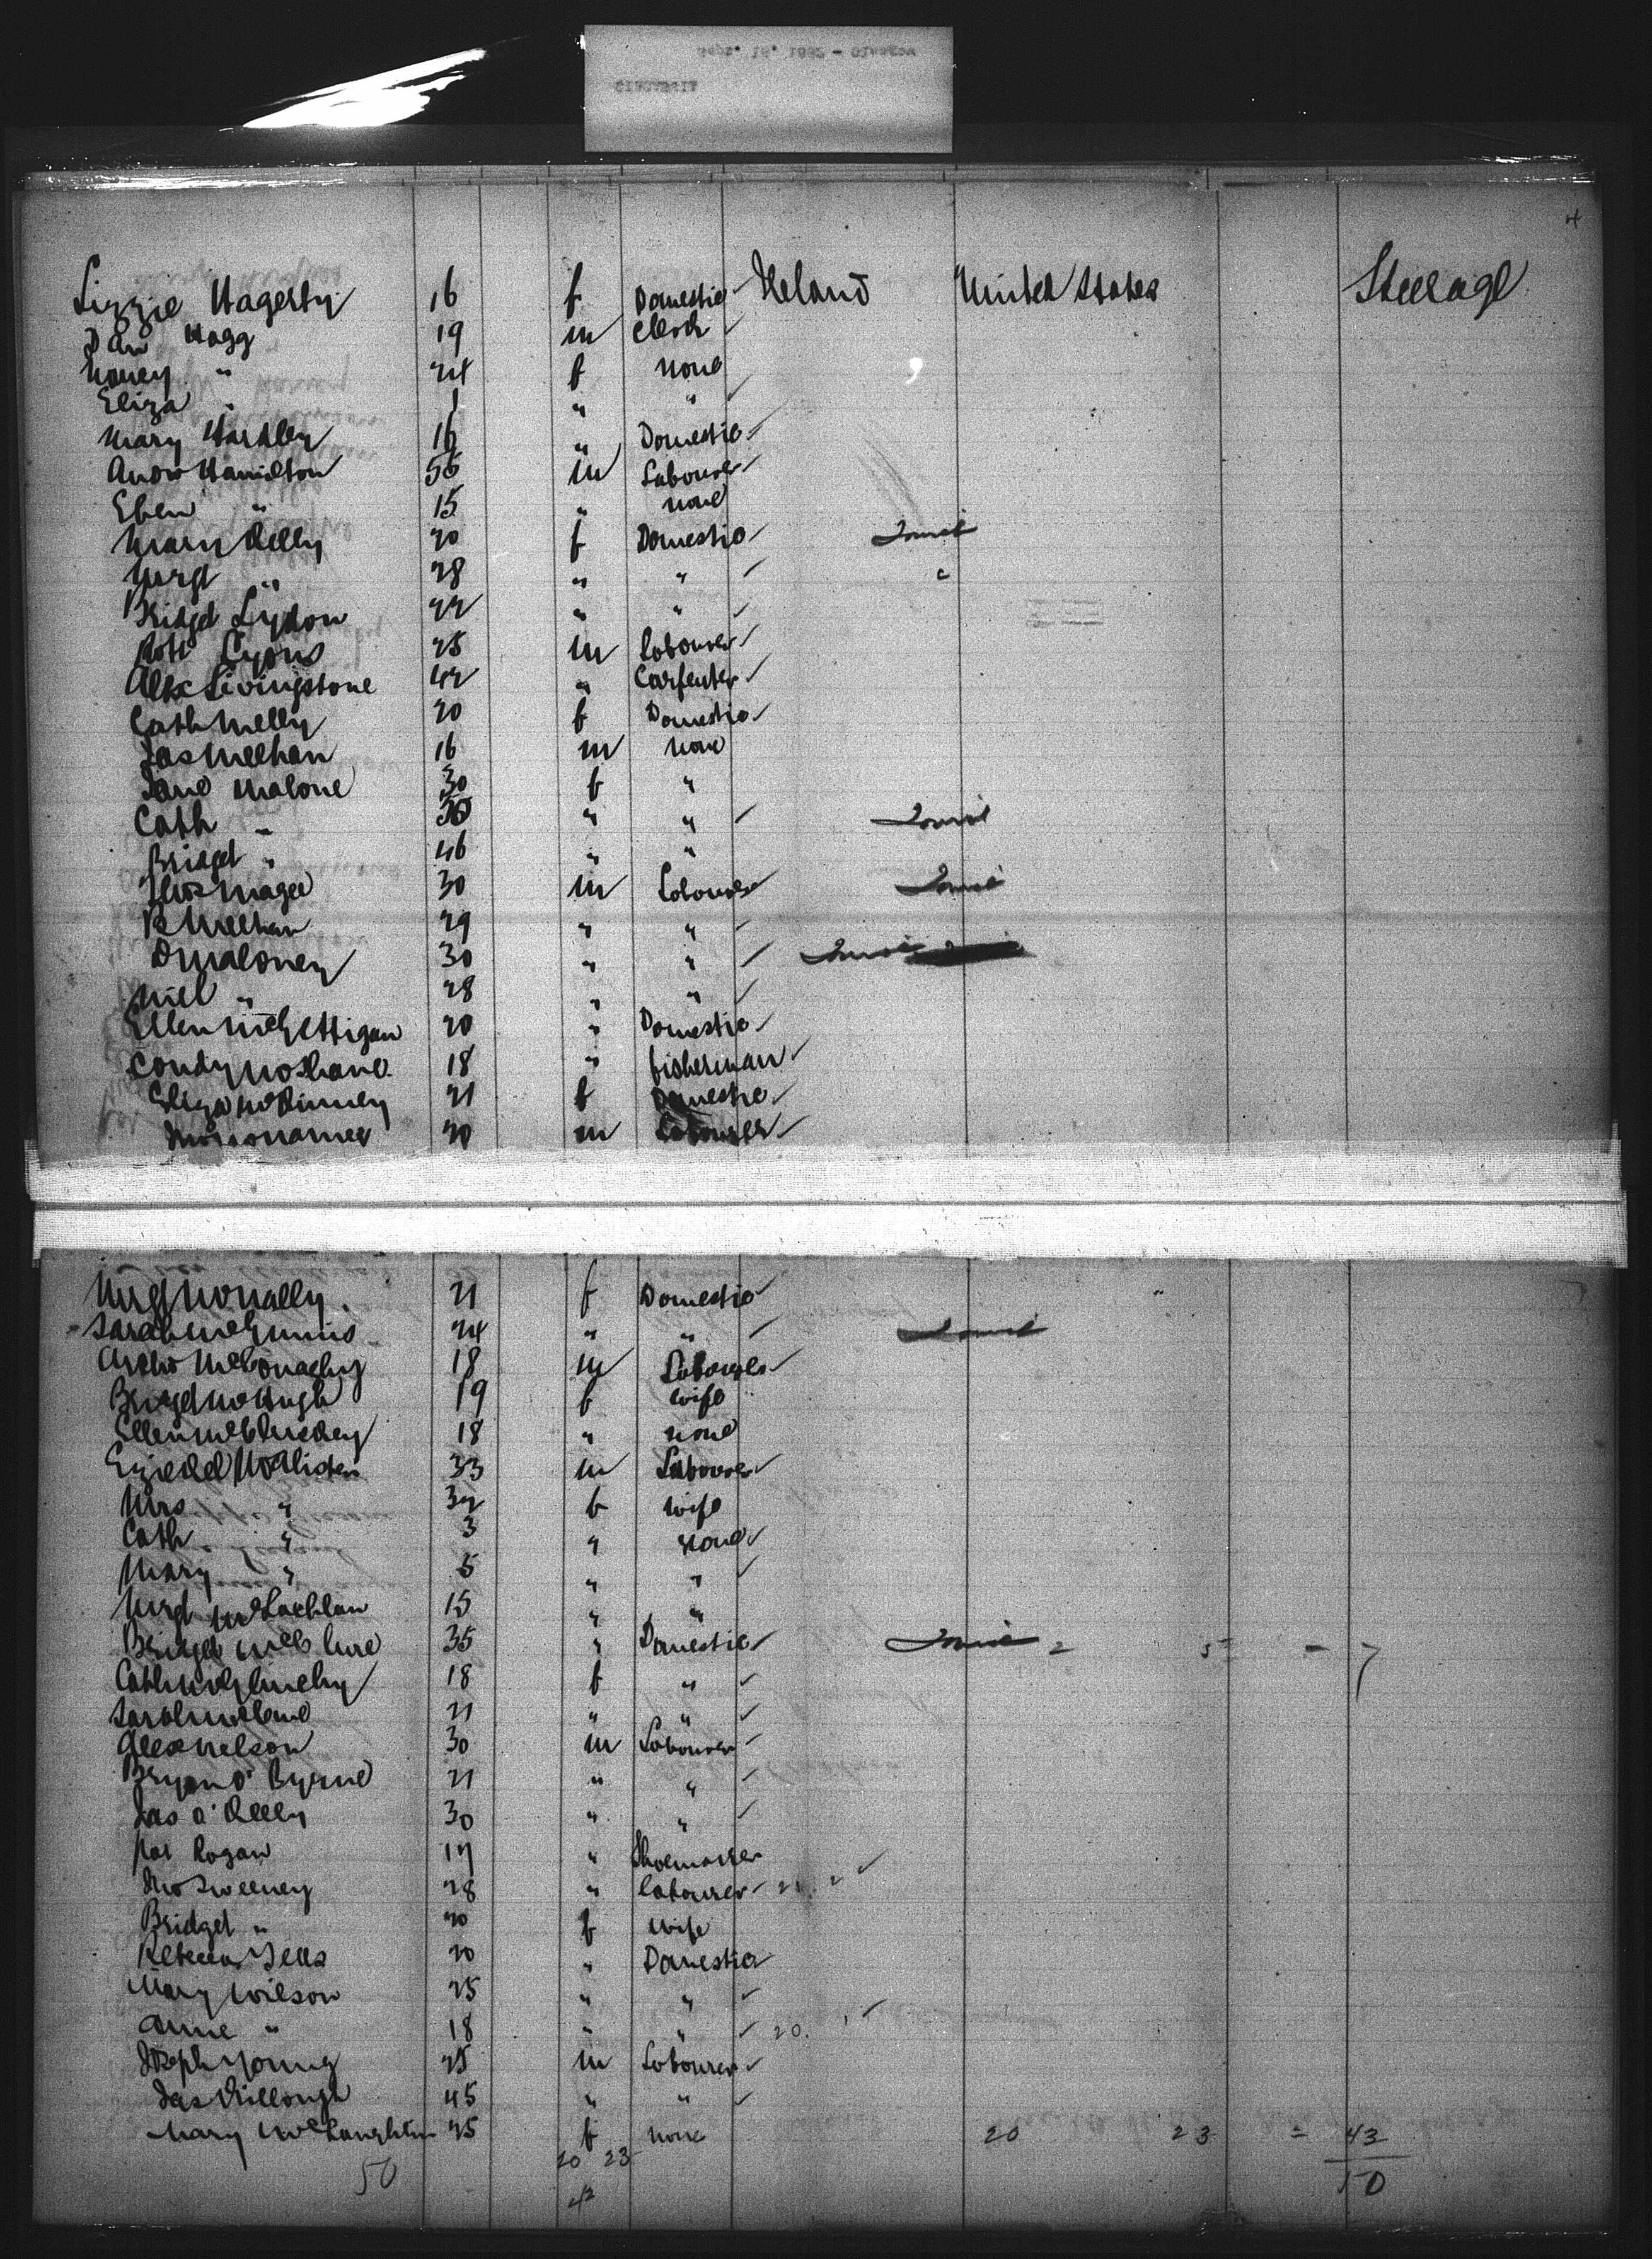 Sept. 15. 1882 - Glasgow
CIRCASSIA
4
Lizzie Hagerty 16 f Domestic Ireland United States Steerage
Dan Hogg 19 m Clerk
Nancy " 24 f None
Eliza " 1 " "
Mary Hardley 16 " Domestic
Andw Hamilton 55 m Labourer
Eben " 15 " None
Mary Kelly 20 f Domestic
Mrgt " 28 " "
Bridget Lydon 22 " "
Robt Lyons 25 m Labourer
Alex Livingstone 42 " Carpenter
Cath Melly 20 f Domestic
Jas Meehan 16 m None
Jane Malone 30 f "
Cath " " "
Bridget " 46 " "
Thos Magee 30 m Labourer
P Meehan 29 " "
D Maloney 30 " "
Niel " 28 " "
Ellen McGettigan 20 " Domestic
Condy McShane 18 " fisherman
Eliza McKinney 21 f Domestic
20 m Labourer
Mrgt McNally 21 f Domestic
Sarah McGinnis 24 " "
Archd McConachy 18 m Labourer
Bridget McHugh 19 f Wife
Ellen McCluskey 18 " None
Ezekiel McAlister 33 m Labourer
Mrs " 32 f Wife
Cath " 3 " None
Mary " 5 " "
Mrgt McLachlan 15 " "
Bridget McClure 35 " Domestic 2 5 - 7
Cath McGlinchy 18 f "
Sarah 21 " "
Alex Nelson 30 m Labourer
Bryan O'Byrne 21 " "
Jas O'Kelly 30 " "
Pat Rogan 17 " Shoemaker
Jno Sweeney 28 " Labourer
Bridget " 20 f Wife
Rebecca 20 " Domestic
Mary Wilson 25 " "
Annie " 18 " " 20.
Joseph Young 25 m Labourer
Jas Killough 45 " "
Mary McLaughlin 25 f None 20 23 = 43
50 20 23 50